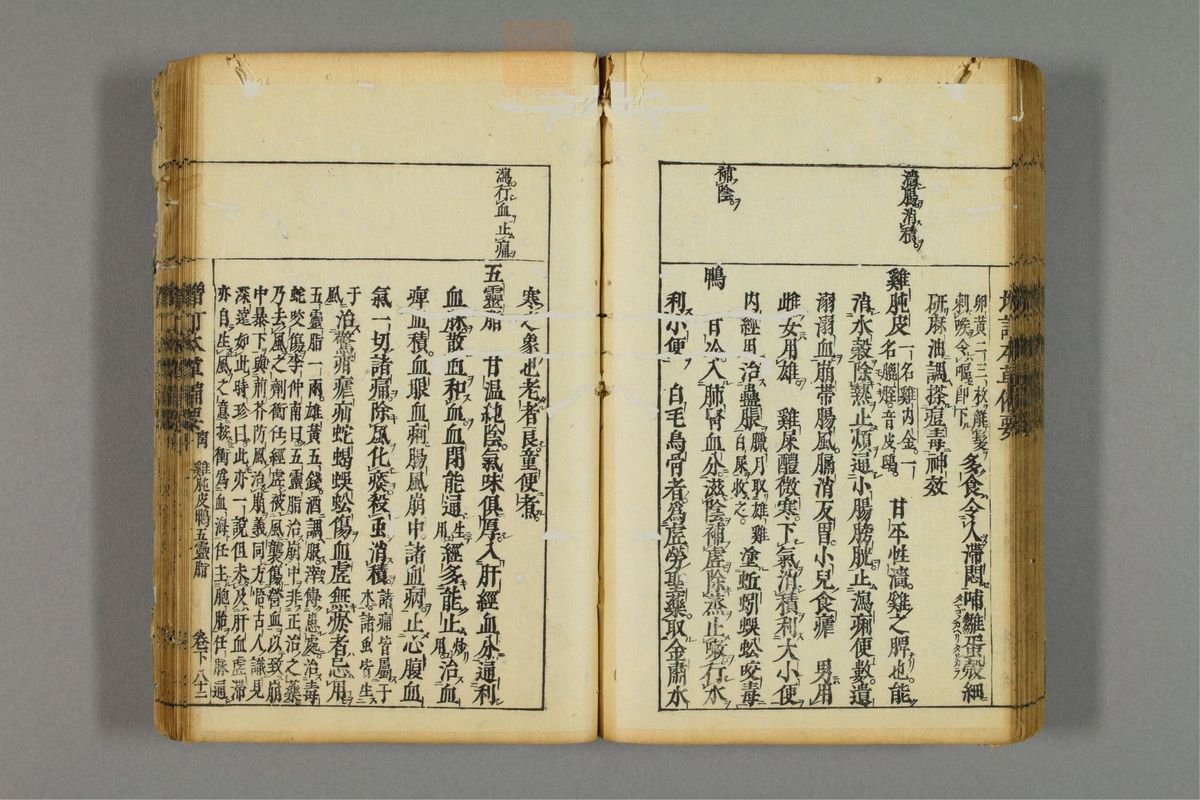 增訂本草備要
卵黃二三枚解髮
刺喉令嘔即下
多食令人滯悶哺雛蛋殼細
研麻油調搽痘毒神效
濇腸消積
雞肫皮一名雞內金一名膍胵音皮鴟
甘平性濇雞之脾也能
消水穀除熱止煩通小腸膀胱止瀉痢便數遺
溺溺血崩帶腸風膈消反胃小兒食瘧 男用
雌女用雄 雞屎醴微寒下氣消積利大小便
內經用治蠱脹臘月取雄雞白屎收之
塗蚯蚓蜈蚣咬毒
補陰
鴨
甘冷入肺腎血分滋陰補虛除蒸止嗽行水
利小便 白毛烏骨者為虛勞聖藥取金肅水
寒之象也老者良童便煮
瀉行血止痛
五靈脂 甘溫純陰氣味俱厚入肝經血分通利
血脉散血和血血閉能通生用經多能止炒用治血
痺血積血眼血痢腸風崩中諸血病止心腹血
氣一切諸痛除風化痰殺虫消積諸痛皆屬于
木諸虫皆生
于風
治驚疳瘧疝蛇蝎蜈蚣傷血虛無瘀者忌用
五靈脂一兩雄黃五錢酒調服滓傅患處治毒
蛇咬傷李仲南曰五靈脂治崩中非正治之藥
乃去風之劑衝任經虛被風襲傷營血以致崩
中暴下與荊芥防風治崩義同方悟古人識見
深遠如此時珍曰此亦一說但未及肝血虛滯
亦自生風之意按衝為血海任主胞胎任脉通
增訂本草備要
雞肫皮鴨五靈脂
卷下
八十二